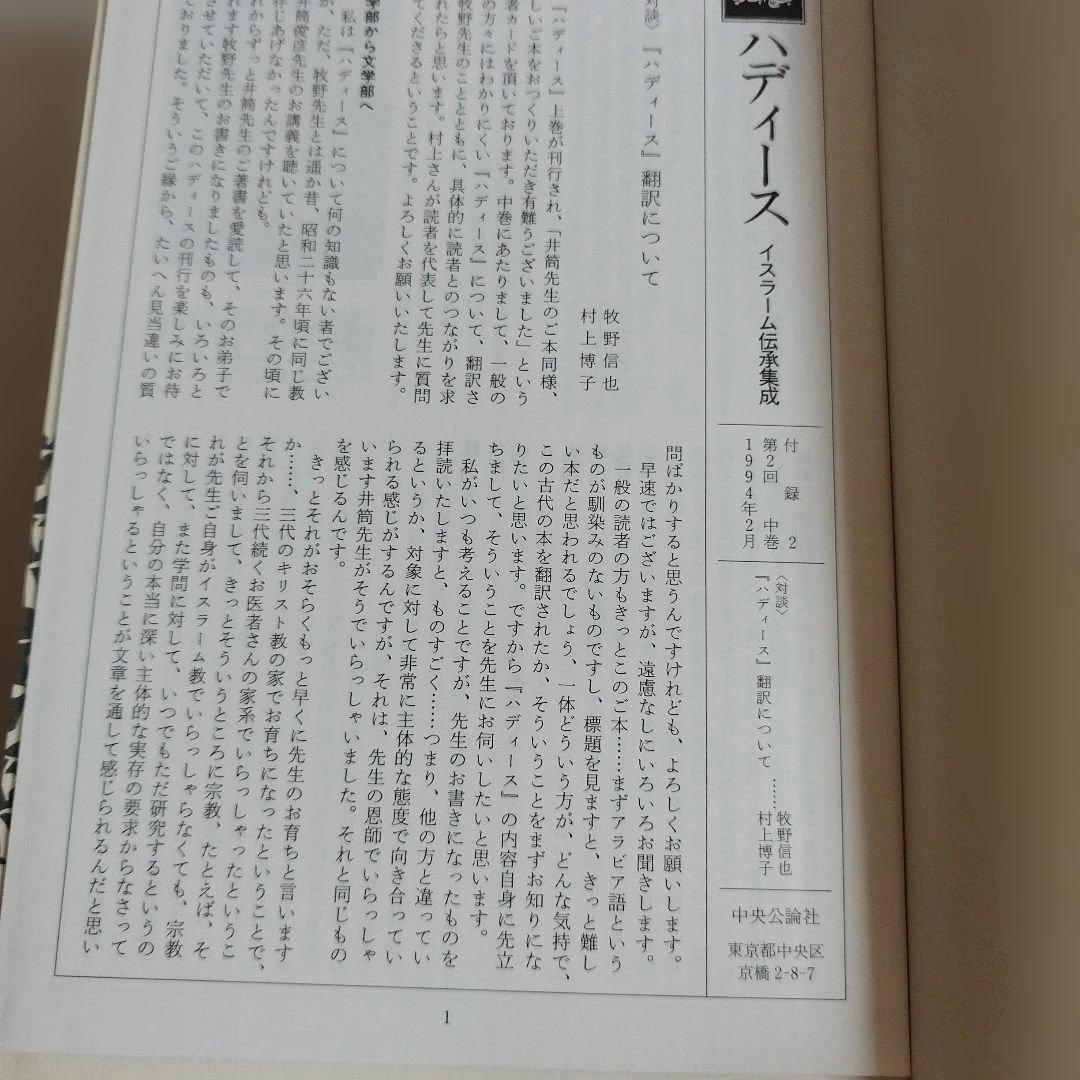 ハディース
イスラーム伝承集成
付録 2
第2回 中巻
1994年2月
〈対談〉
『ハディース』翻訳について ……
牧野信也
村上博子
中央公論社
東京都中央区
京橋2-8-7
対談〉『ハディース』翻訳について
牧野信也
村上博子
『ハディース』上巻が刊行され、「井筒先生のご本同様、
しいご本をおつくりいただき有難うございました」という
者カードを頂いております。中巻にあたりまして、一般の
の方々にはわかりにくい『ハディース』について、翻訳さ
牧野先生のこととともに、具体的に読者とのつながりを求
れたらと思います。村上さんが読者を代表して先生に質問
てくださるということです。よろしくお願いいたします。
学部から文学部へ
私は『ハディース』について何の知識もない者でござい
が、ただ、牧野先生とは遥か昔、昭和二十六年頃に同じ教
井筒俊彦先生のお講義を聴いていたと思います。その頃に
存じあげなかったんですけれども。
れからずっと井筒先生のご著書を愛読して、そのお弟子で
れます牧野先生のお書きになりましたものも、いろいろと
させていただいて、このハディースの刊行を楽しみにお待
ておりました。そういうご縁から、たいへん見当違いの質
問ばかりすると思うんですけれども、よろしくお願いします。
早速ではございますが、遠慮なしにいろいろお聞きします。
一般の読者の方もきっとこのご本……まずアラビア語という
ものが馴染みのないものですし、標題を見ますと、きっと難し
い本だと思われるでしょう、一体どういう方が、どんな気持で、
この古代の本を翻訳されたか、そういうことをまずお知りにな
りたいと思います。ですから『ハディース』の内容自身に先立
ちまして、そういうことを先生にお伺いしたいと思います。
私がいつも考えることですが、先生のお書きになったものを
拝読いたしますと、ものすごく……つまり、他の方と違ってい
るというか、対象に対して非常に主体的な態度で向き合ってい
られる感じがするんですが、それは、先生の恩師でいらっしゃ
います井筒先生がそうでいらっしゃいました。それと同じもの
を感じるんです。
きっとそれがおそらくもっと早くに先生のお育ちと言います
か……、三代のキリスト教の家でお育ちになったということで、
それから三代続くお医者さんの家系でいらっしゃったというこ
とを伺いまして、きっとそういうところに宗教、たとえば、そ
れが先生ご自身がイスラーム教でいらっしゃらなくても、宗教
に対して、また学問に対して、いつでもただ研究するというの
ではなく、自分の本当に深い主体的な実存の要求からなさって
いらっしゃるということが文章を通して感じられるんだと思い
1